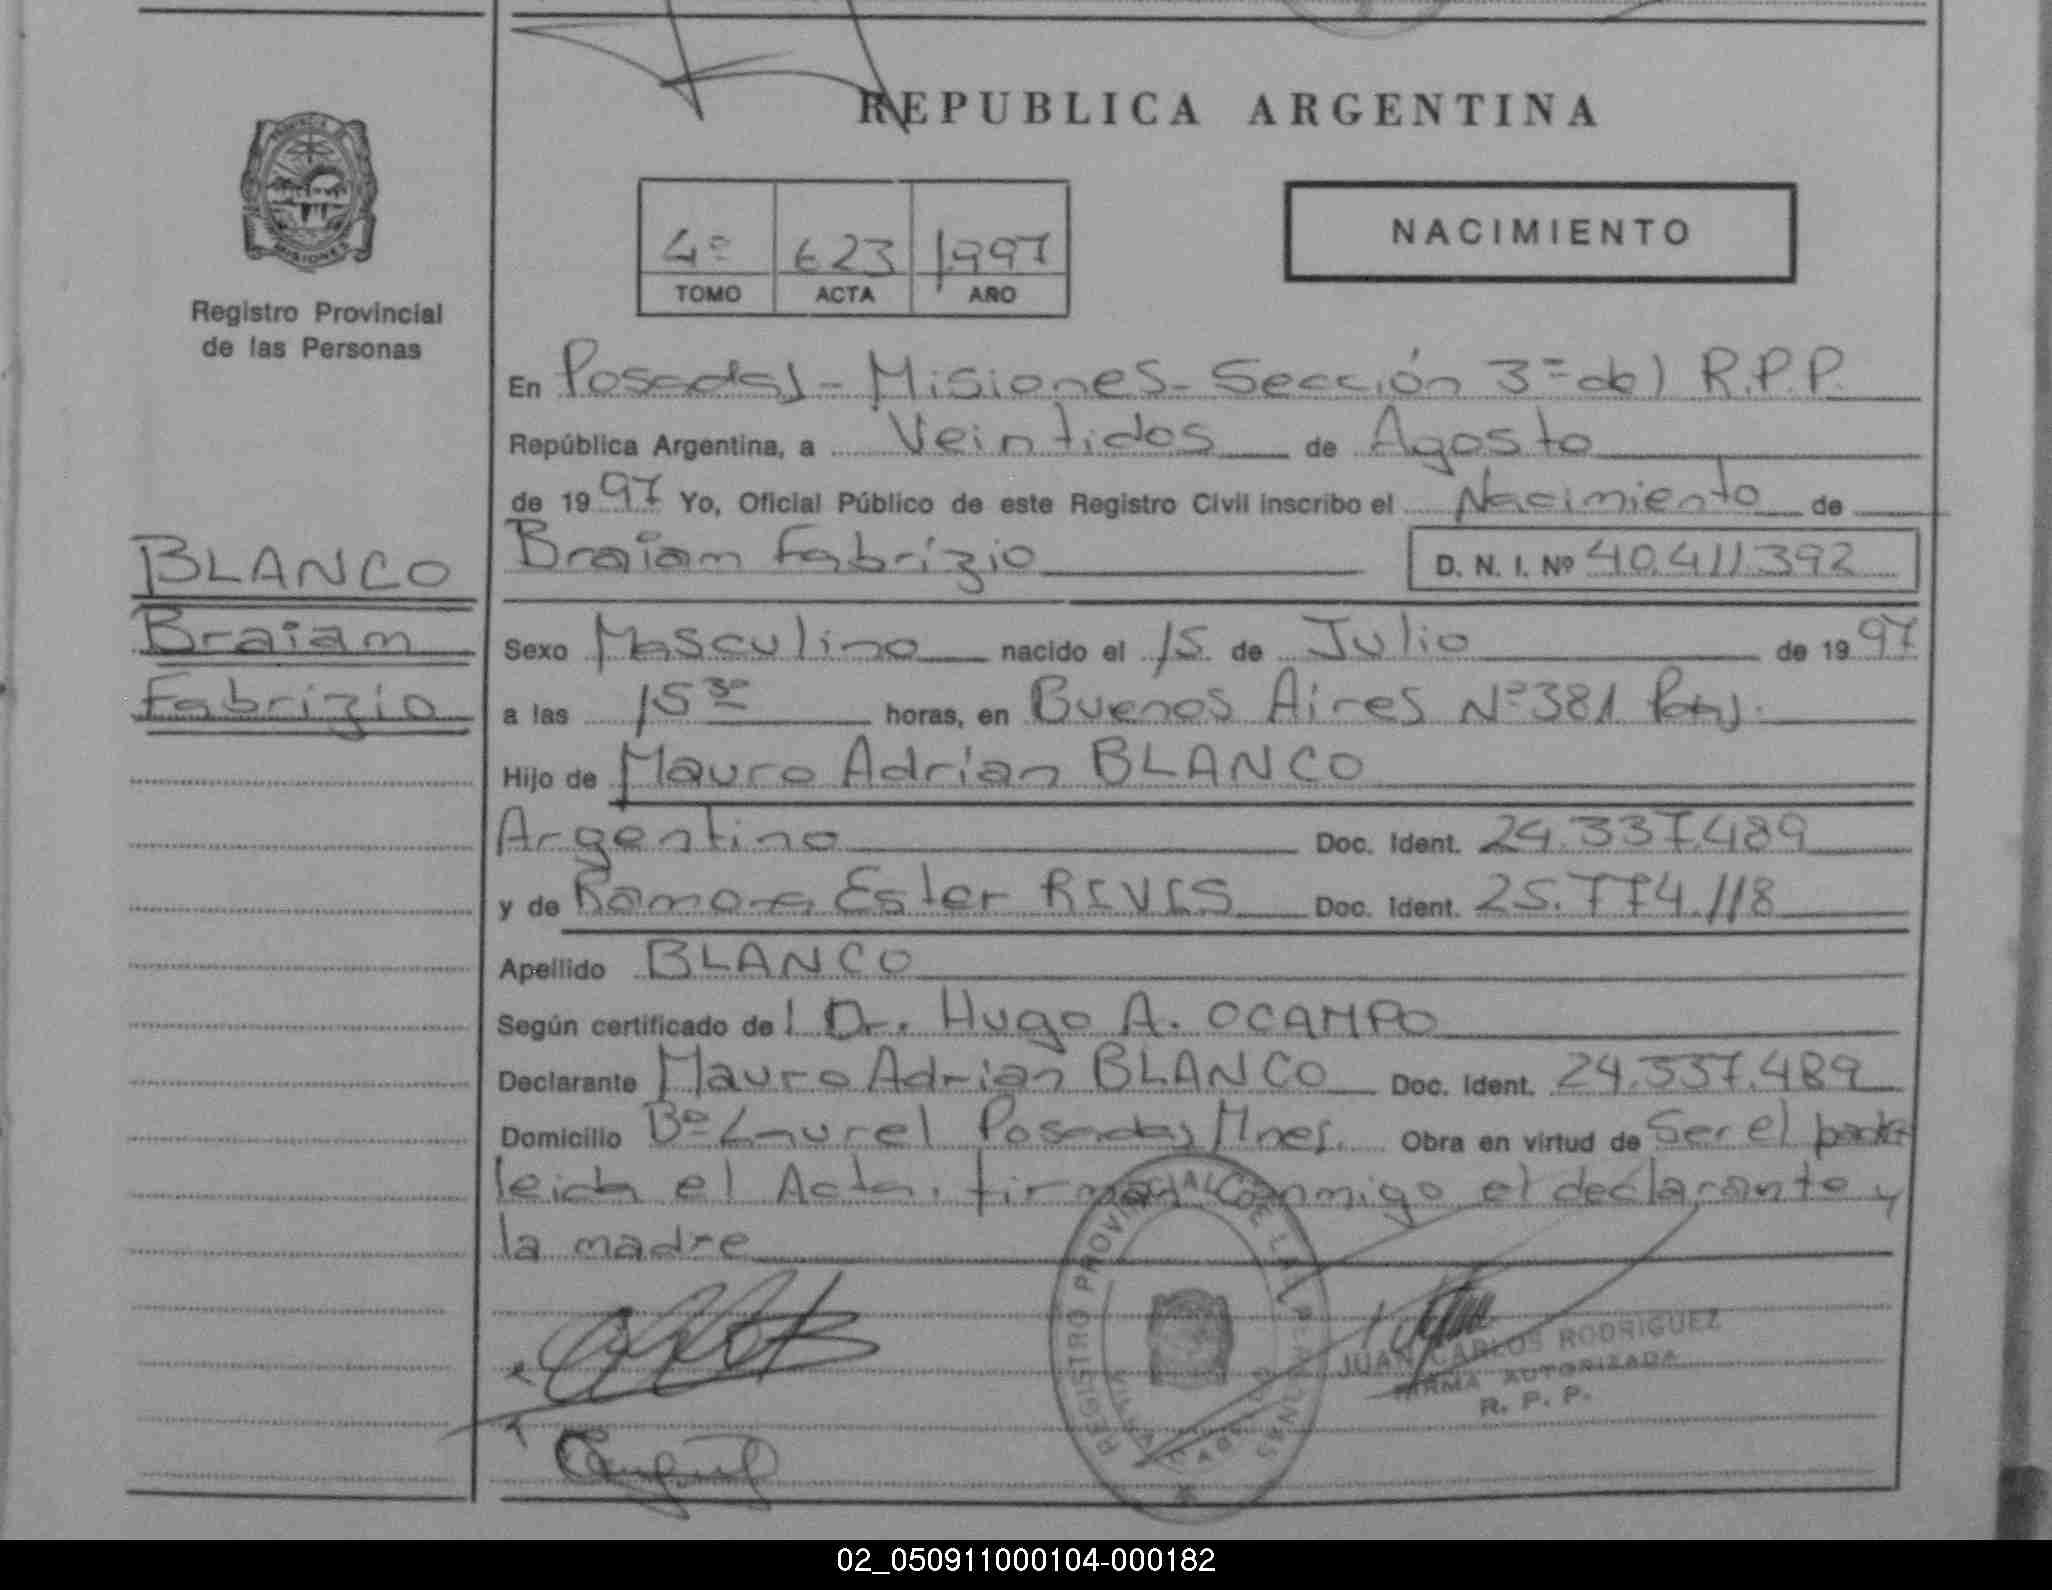 REPUBLICA ARGENTINA
PROVINCIA DE
MISIONES
Registro Provincial
de las Personas
4º 623 1997
TOMO ACTA AÑO
NACIMIENTO
En Posadas - Misiones - Sección 3ª del R.P.P.
República Argentina, a Veintidos de Agosto
de 1997 Yo, Oficial Público de este Registro Civil inscribo el Nacimiento de
Braiam Fabrizio D. N. I. Nº 40.411.392
BLANCO
Braiam
Fabrizio
Sexo Masculino nacido el 15 de Julio de 1997
a las 15 30 horas, en Buenos Aires Nº 381 Pdas.
Hijo de Mauro Adrian BLANCO
Argentino Doc. Ident. 24.337.489
y de Ramona Ester Doc. Ident. 25.774.118
Apellido BLANCO
Según certificado del Dr. Hugo A. OCAMPO
Declarante Mauro Adrian BLANCO Doc. Ident. 24.337.489
Domicilio Bº Laurel Posadas Mnes. Obra en virtud de Ser el padre
leida el Acta, firman Conmigo el declarante y
la madre
REGISTRO PROVINCIAL DE LAS PERSONAS
JUAN CARLOS RODRIGUEZ
FIRMA AUTORIZADA
R. P. P.
02_050911000104-000182